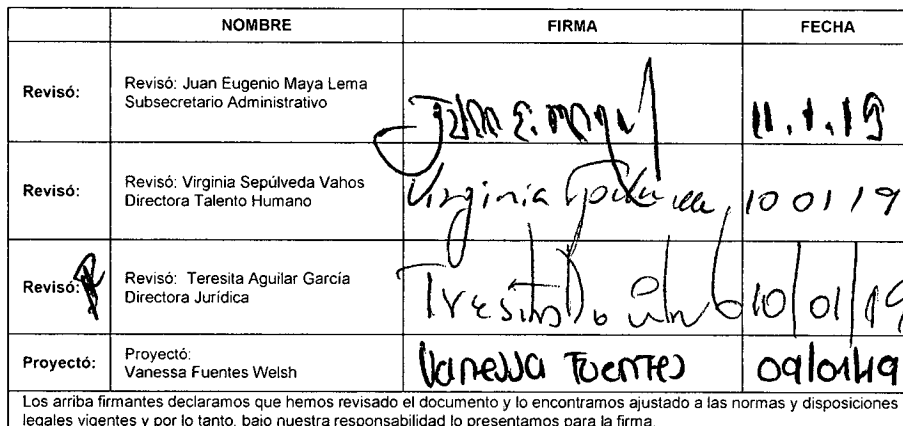 NOMBRE FIRMA FECHA
Revisó: Revisó: Juan Eugenio Maya Lema
Subsecretario Administrativo
11.1.19
Revisó: Revisó: Virginia Sepúlveda Vahos
Directora Talento Humano
Virginia 10 01 19
Revisó: Revisó: Teresita Aguilar García
Directora Jurídica
10/01/19
Proyectó: Proyectó:
Vanessa Fuentes Welsh
Vanessa Fuentes 09/01/19
Los arriba firmantes declaramos que hemos revisado el documento y lo encontramos ajustado a las normas y disposiciones
legales vigentes y por lo tanto, bajo nuestra responsabilidad lo presentamos para la firma.